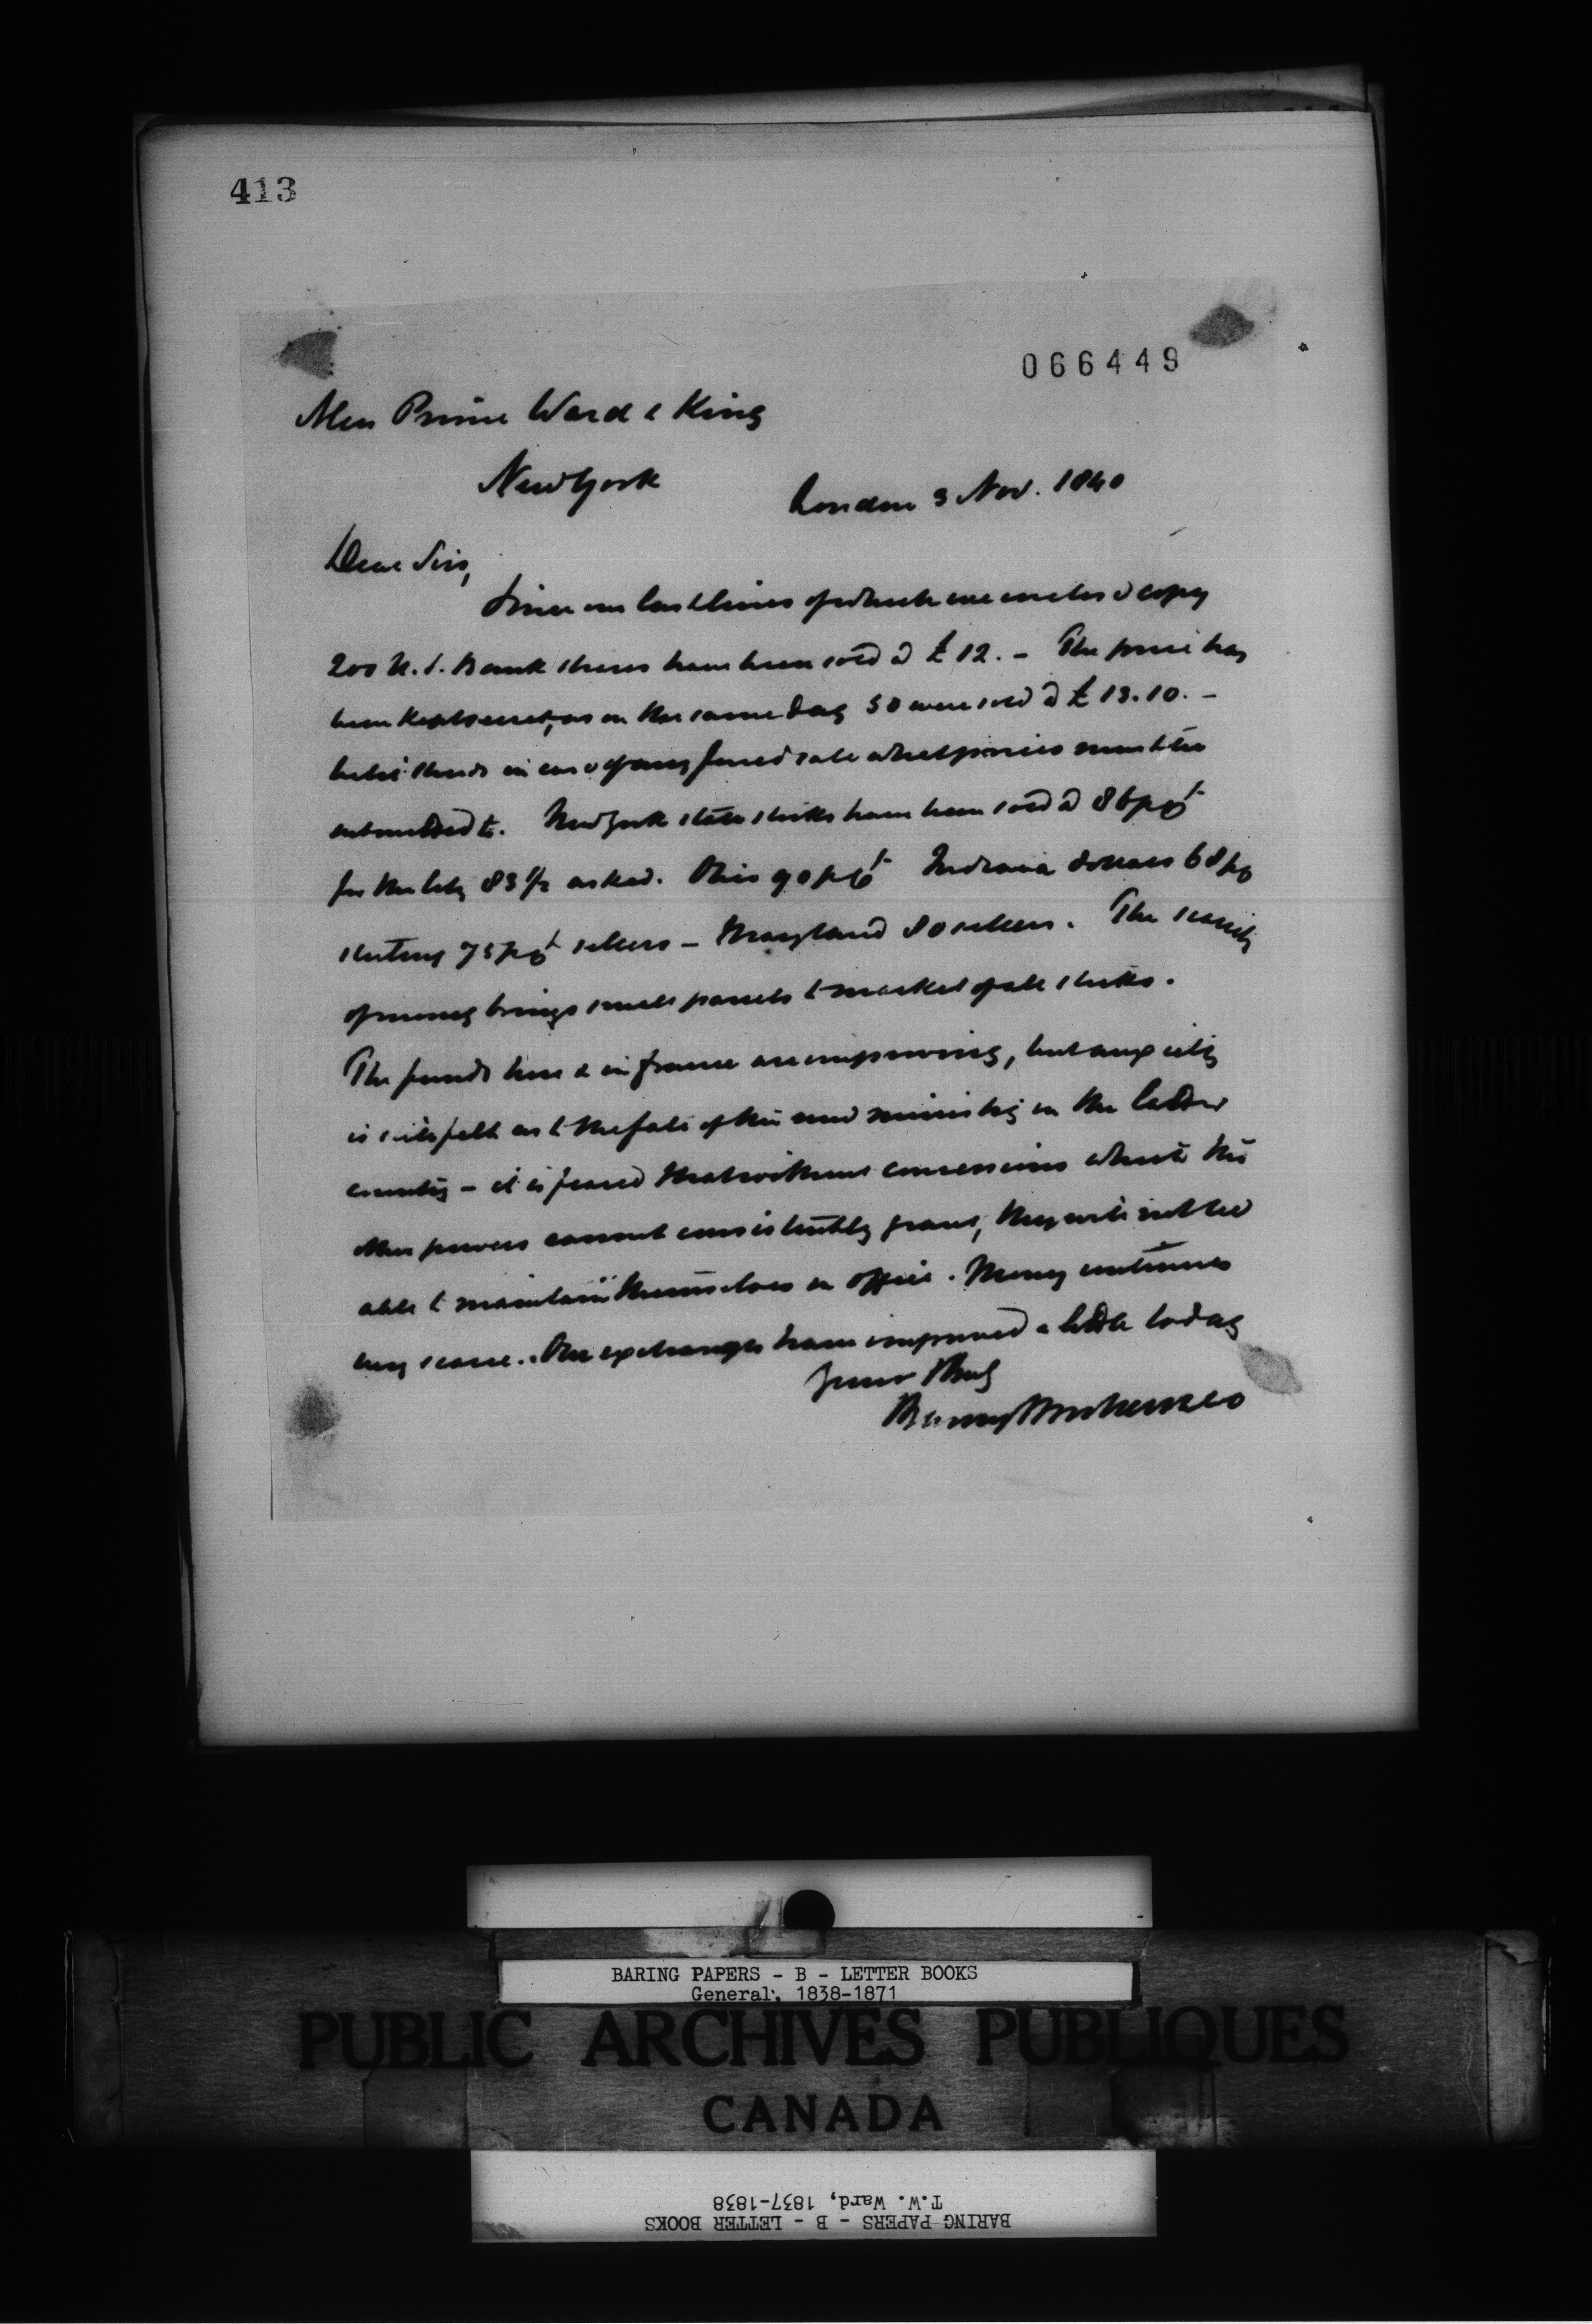 413
066449
Mess Prime Ward & King
New York
London 3 Nov. 1840
Dear Sirs,
Since our last lines of which we enclose copy
200 U.S. Bank shares have been sold @ £12. - The price has
been kept secret, as on the same day 50 were sold @ £13.10. -
but it shows in case of any forced sale what prices must be
submitted to. New York state stocks have been sold @ 86 p ct
for the City 83 1/2 asked. Ohio 90 p ct Indiana dollars 68 p c
sterling 75 p ct sellers - Maryland 80 sellers. The scarcity
of money brings small parcels to market of all stocks.
The funds here & in France are improving, but anxiety
is still felt as to the fate of the new ministry in the latter
country - it is feared that without concessions which the
other powers cannot consistently grant, they will not be
able to maintain themselves in office. Money continues
very scarce. The exchanges have improved a little today
Your Truly
Baring Brothers & Co
BARING PAPERS - B - LETTER BOOKS
General, 1838-1871
PUBLIC ARCHIVES PUBLIQUES
CANADA
T.W. Ward, 1837-1838
BARING PAPERS - B - LETTER BOOKS